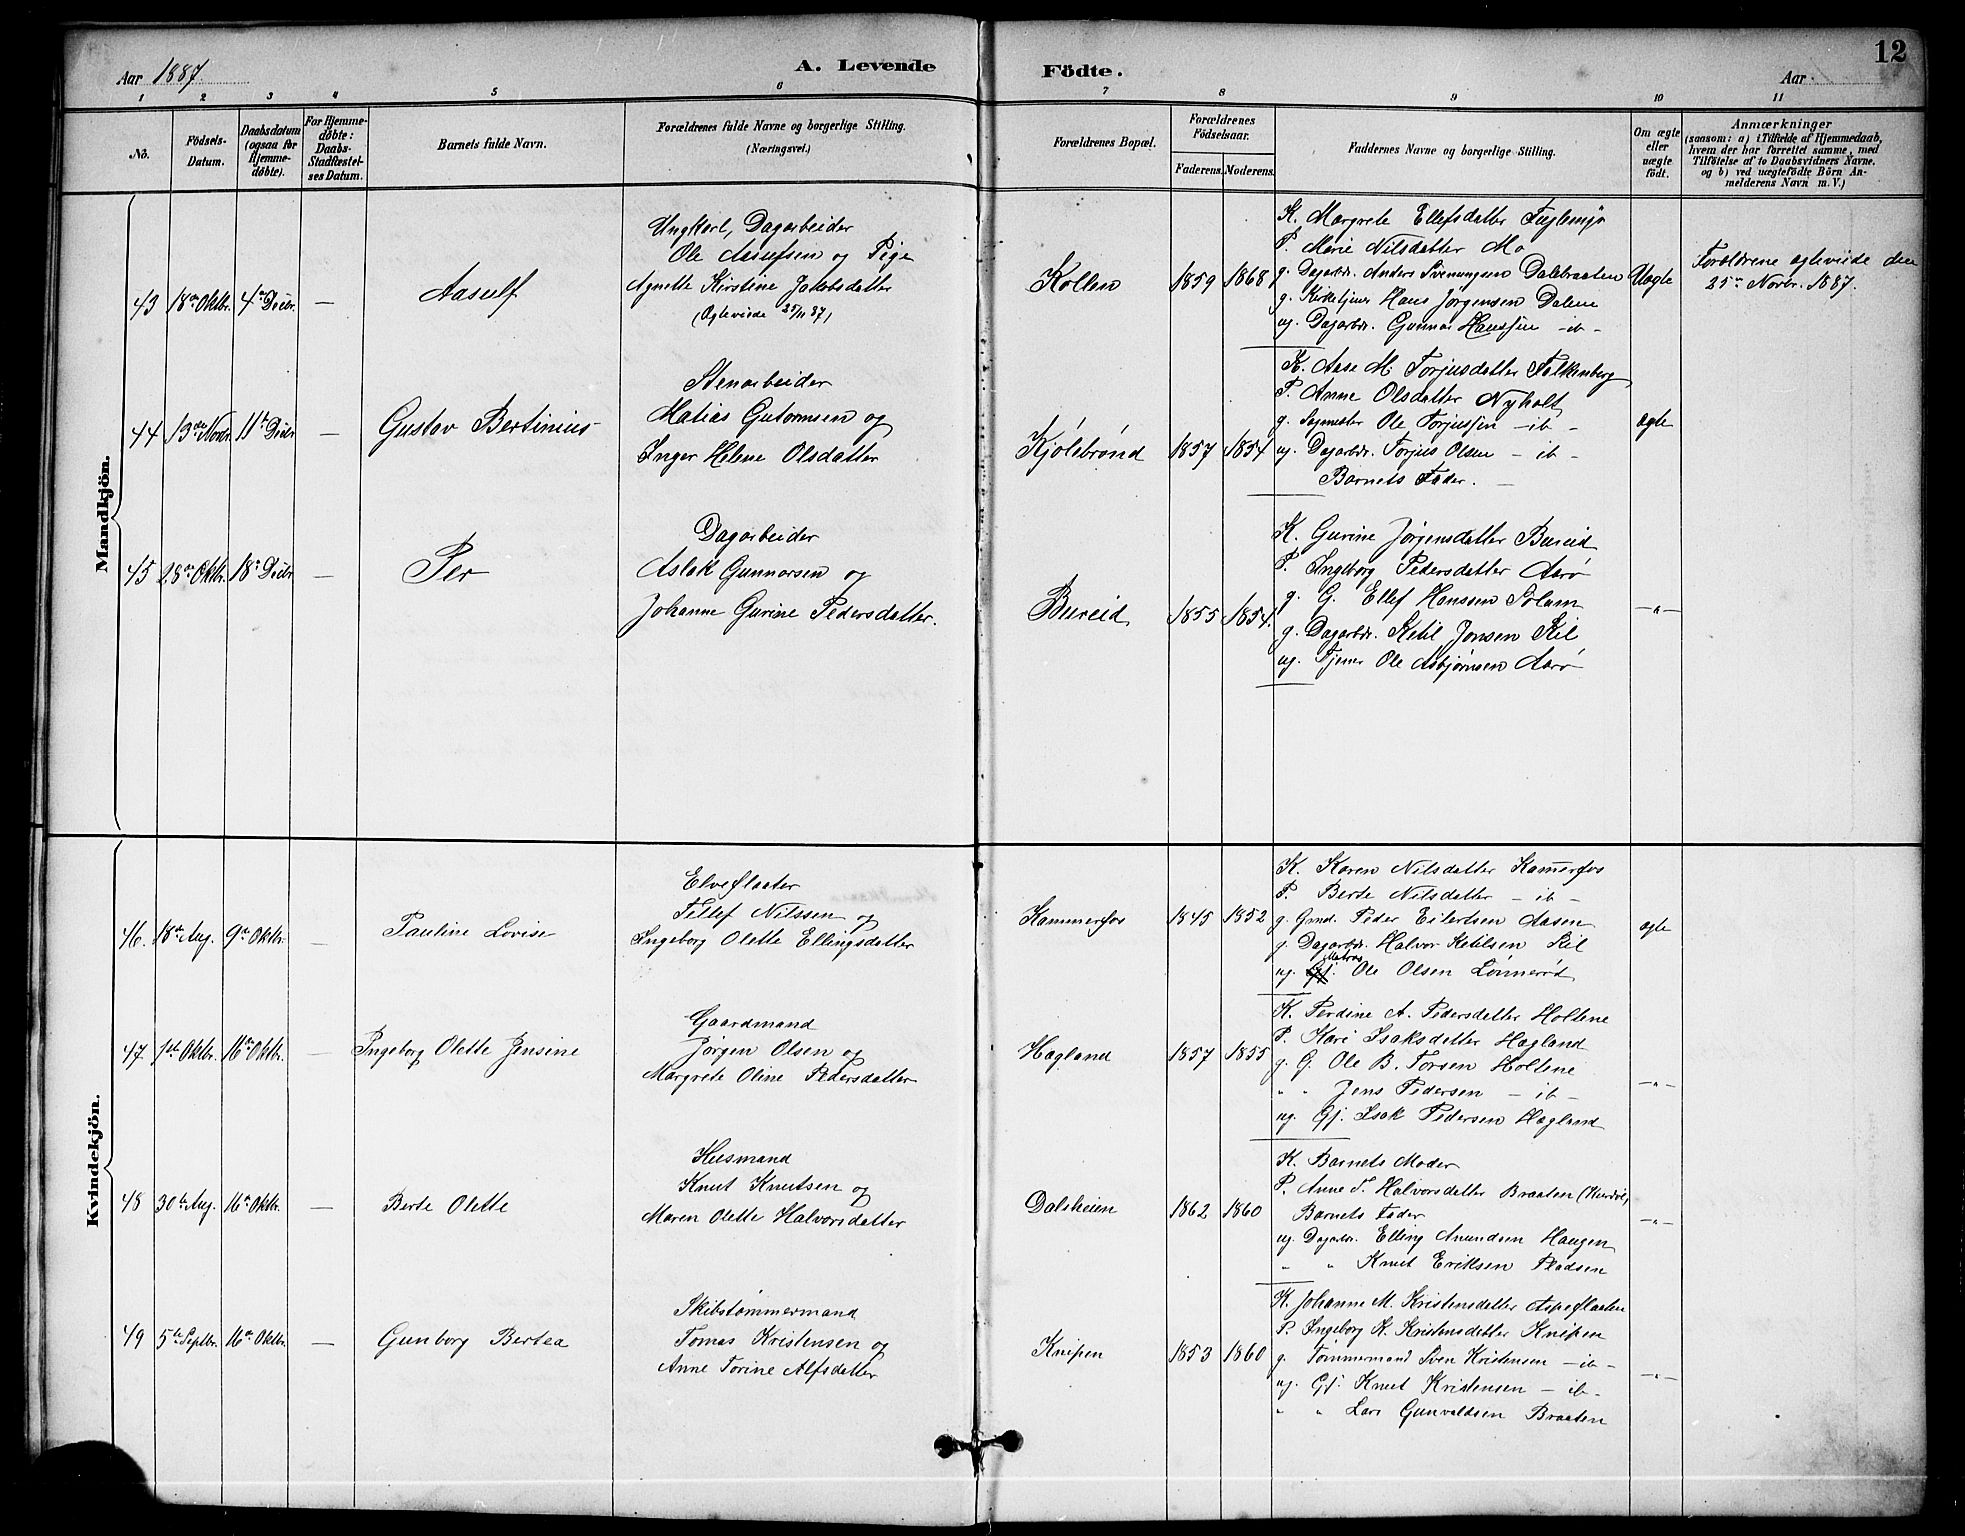 Aar 1887.
A. Levende
Födte.
Aar
12
1 2 3 4 5 6 7 8 9 10 11
No.
Födsels-Datum.
Daabsdatum (ogsaa for Hjemme-döbte).
For Hjemme-döbte: Daabs-Stadfæstel-ses Datum.
Barnets fulde Navn.
Forældrenes fulde Navne og borgerlige Stilling. (Næringsvei.)
Forældrenes Bopæl.
Forældrenes Födselsaar.
Faderens. Moderens.
Faddernes Navne og borgerlige Stilling.
Om ægte eller uægte födt.
Anmærkninger
(saasom: a) i Tilfælde af Hjemmedaab, hvem der har forrettet samme, med Tilföielse af to Daabsvidners Navne. og b) ved uægtefödte Börn An-melderens Navn m. V.)
Mandkjön.
43 18de Oktbr. 4de Decbr. —
Aasulf
Ungkarl, Dagarbeider
Ole Aasulfsen og Pige
Agnette Kirstine Jakobsdatter
(Ægteviede 25/11 87)
Kollen 1859 1868
K. Margrete Ellefsdatter Fuglemyr
P. Marie Nilsdatter Mo
g. Dagarbdr. Anders Svenungsen Dalebraaten
g. Kirketjener Hans Jørgensen Dalene
ug. Dagarbdr. Gunnar Hanssen — ib —
Uægte
Forældrene ægteviede den
25de Novbr. 1887.
44 13de Novbr. 11te Decbr. —
Gustav Bertinius
Stenarbeider
Matias Gutormsen og
Inger Helene Olsdatter
Kjølebrønd 1857 1854
K. Aase M. Torjusdatter Falkenberg
P. Anne Olsdatter Nyholt
g. Sagmester Ole Torjussen — ib —
ug. Dagarbdr. Torjus Olsen — ib —
Barnets Fader. —
ægte
45 28de Oktbr. 18de Decbr. —
Per
Dagarbeider
Aslak Gunnarsen og
Johanne Gurine Pedersdatter.
Bureid 1855 1854.
K. Gurine Jørgensdatter Bureid
P. Ingeborg Pedersdatter Aarø
g. G. Ellef Hanssen Solum
g. Dagarbdr. Ketil Jonsen Kil
ug. Tjener Ole Asbjørnsen Aarø
— " —
Kvindekjön.
46. 18de Aug. 9de Oktbr. —
Pauline Lovise
Elvefløater
Tellef Nilssen og
Ingeborg Olette Ellingsdatter
Kammerfos 1845 1852
K. Karen Nilsdatter Kammerfos
P. Berte Nilsdatter — ib —
g. Grmd. Peder Eilertsen Aasen
g. Dagarbdr. Halvor Ketilsen Kil
ug. Matros Ole Olsen Lønnerød
ægte
47 1ste Oktbr. 16de Oktbr. —
Ingeborg Olette Jensine
Gaardmand
Jørgen Olsen og
Margrete Oline Pedersdatter
Hagland 1857 1855
K. Perdine A. Pedersdatter Holtene
P. Kari Isaksdatter Hagland
g. G. Ole B. Torsen Holtene
" " Jens Pedersen — ib —
ug. Gj. Isak Pedersen Hagland
— " —
48 30te Aug. 16de Oktbr. —
Berte Olette
Husmand
Knut Knutsen og
Maren Olette Halvorsdatter
Dalsheien 1862 1860
K. Barnets Moder
P. Anne T. Halvorsdatter Braaten
Barnets Fader
ug. Dagarbdr. Elling Amundsen Haugen
" " Knut Eriksen Pladsen
— " —
49 5te Septbr. 16de Oktbr. —
Gunborg Bertea
Skibstømmermand
Tomas Kristensen og
Anne Torine Alfsdatter
Knipen 1853 1860
K. Johanne M. Kristensdatter Aspeflaaten
P. Ingeborg K. Kristensdatter Knipen
g. Tømmermand Sven Kristensen — ib —
ug. Gj. Knut Kristensen — ib —
" " Lars Gunvaldsen Braaten
— " —